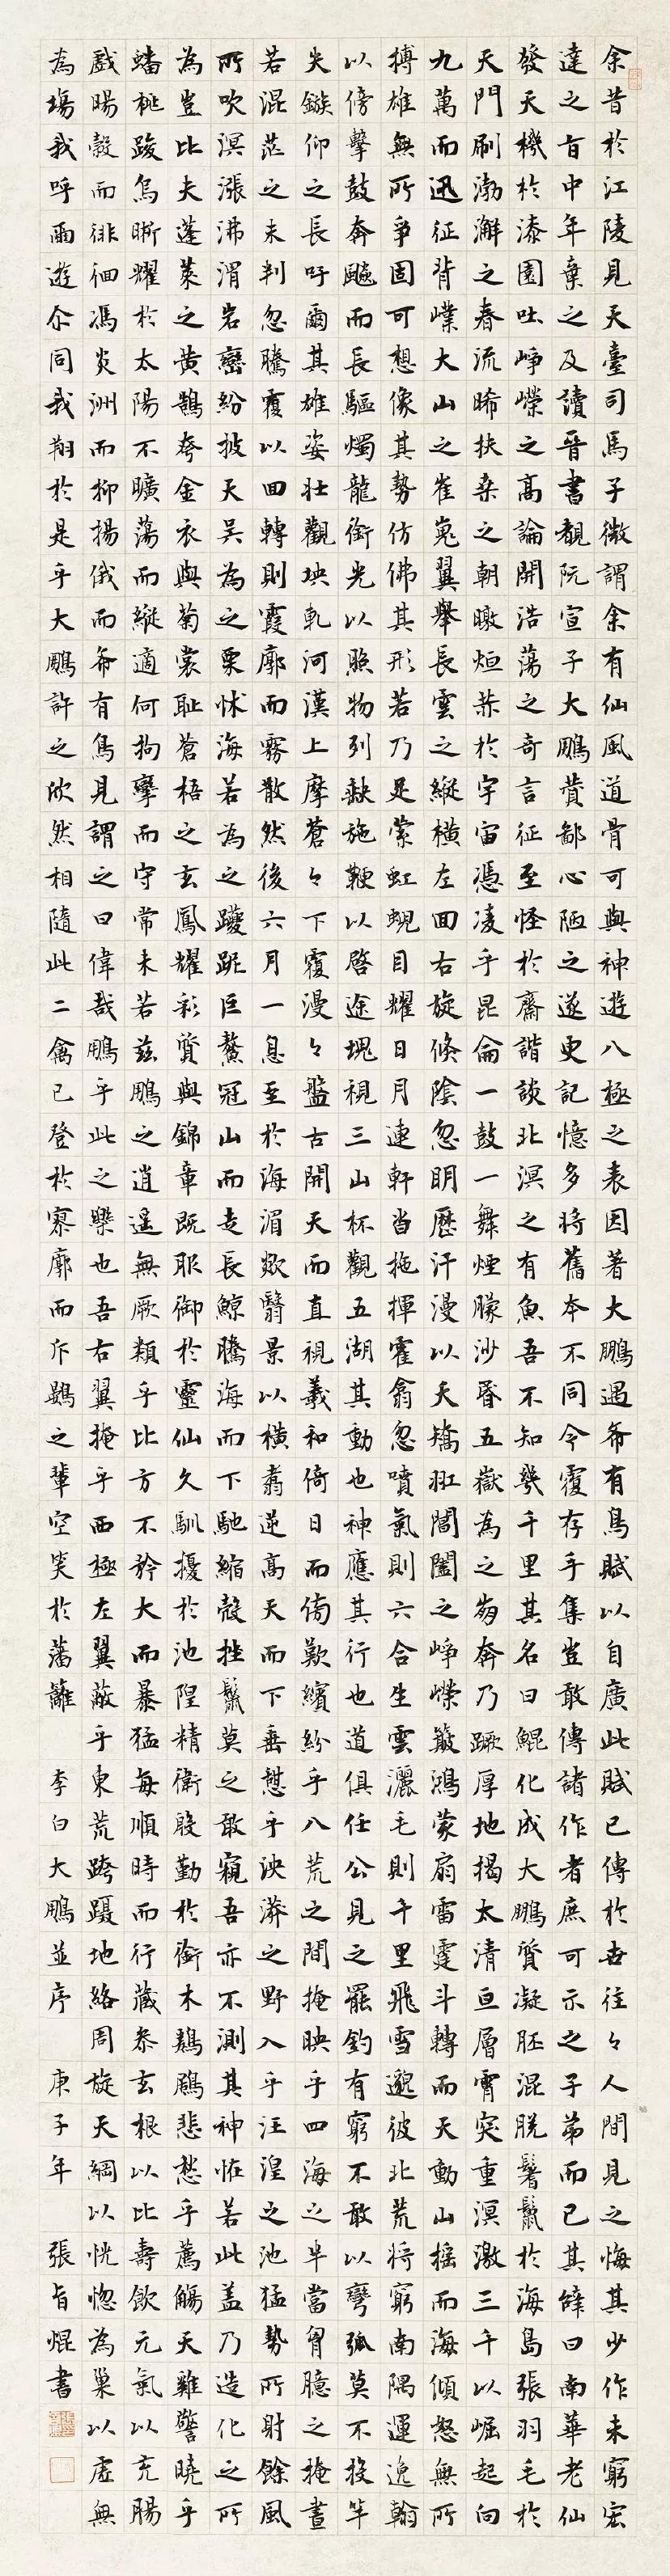 余昔於江陵見天臺司馬子微謂余有仙風道骨可與神遊八極之表因著大鵬遇希有鳥賦以自廣此賦已傳於世往々人間見之悔其少作未窮宏
達之旨中年棄之及讀晉書覩阮宣子大鵬贊鄙心陋之遂更記憶多將舊本不同今覆存手集豈敢傳諸作者庶可示之子弟而已其辭曰南華老仙
發天機於漆園吐崢嶸之高論開浩蕩之奇言征至怪於齋諧談北溟之有魚吾不知幾千里其名曰鯤化成大鵬質凝胚混脫鬐鬣於海島張羽毛於
天門刷渤澥之春流晞扶桑之朝暾烜赫於宇宙憑凌乎昆侖一鼓一舞煙朦沙昏五嶽為之崩奔乃蹶厚地揭太清亘層霄突重溟激三千以崛起向
九萬而迅征背嶪大山之崔嵬翼舉長雲之縱橫左回右旋倏陰忽明歷汗漫以夭矯羾閶闔之崢嶸簸鴻蒙扇雷霆斗轉而天動山搖而海傾怒無所
搏雄無所爭固可想像其勢仿佛其形若乃足縈虹蜺目耀日月連軒沓拖揮霍翕忽噴氣則六合生雲灑毛則千里飛雪邈彼北荒將窮南隅運逸翰
以傍擊鼓奔飈而長驅燭龍銜光以照物列缺施鞭以啓途塊視三山杯觀五湖其動也神應其行也道俱任公見之罷釣有窮不敢以彎弧莫不投竿
失鏃仰之長吁爾其雄姿壯觀坱軋河漢上摩蒼々下覆漫々盤古開天而直視羲和倚日而傍歎繽紛乎八荒之間掩映乎四海之半當胷臆之掩晝
若混茫之未判忽騰覆以回轉則霞廓而霧散然後六月一息至於海湄欻翳景以橫翥逆高天而下垂憇乎泱漭之野入乎汪湟之池猛勢所射餘風
所吹溟漲沸渭岩巒紛披天吳為之栗怵海若為之躨跜巨鰲冠山而走長鯨騰海而下馳縮殼挫鬣莫之敢窺吾亦不測其神怪若此蓋乃造化之所
為豈比夫蓬萊之黃鵠夸金衣與菊裳恥蒼梧之玄鳳耀彩質與錦章既服御於靈仙久馴擾於池隍精衛殷勤於銜木鶢鶋悲愁乎薦觴天雞警曉乎
蟠桃踆烏晰耀於太陽不曠蕩而縱適何拘攣而守常未若茲鵬之逍遙無厥類乎比方不矜大而暴猛每順時而行藏叅玄根以比壽飲元氣以充腸
戲暘穀而徘徊馮炎洲而抑揚俄而希有鳥見謂之曰偉哉鵬乎此之樂也吾右翼掩乎西極左翼蔽乎東荒跨躡地絡周旋天綱以恍惚為巢以虛無
為場我呼爾遊尒同我翔於是乎大鵬許之欣然相隨此二禽已登於寥廓而斥鷃之輩空笑於藩籬 李白大鵬並序 庚子年 張旨焜書